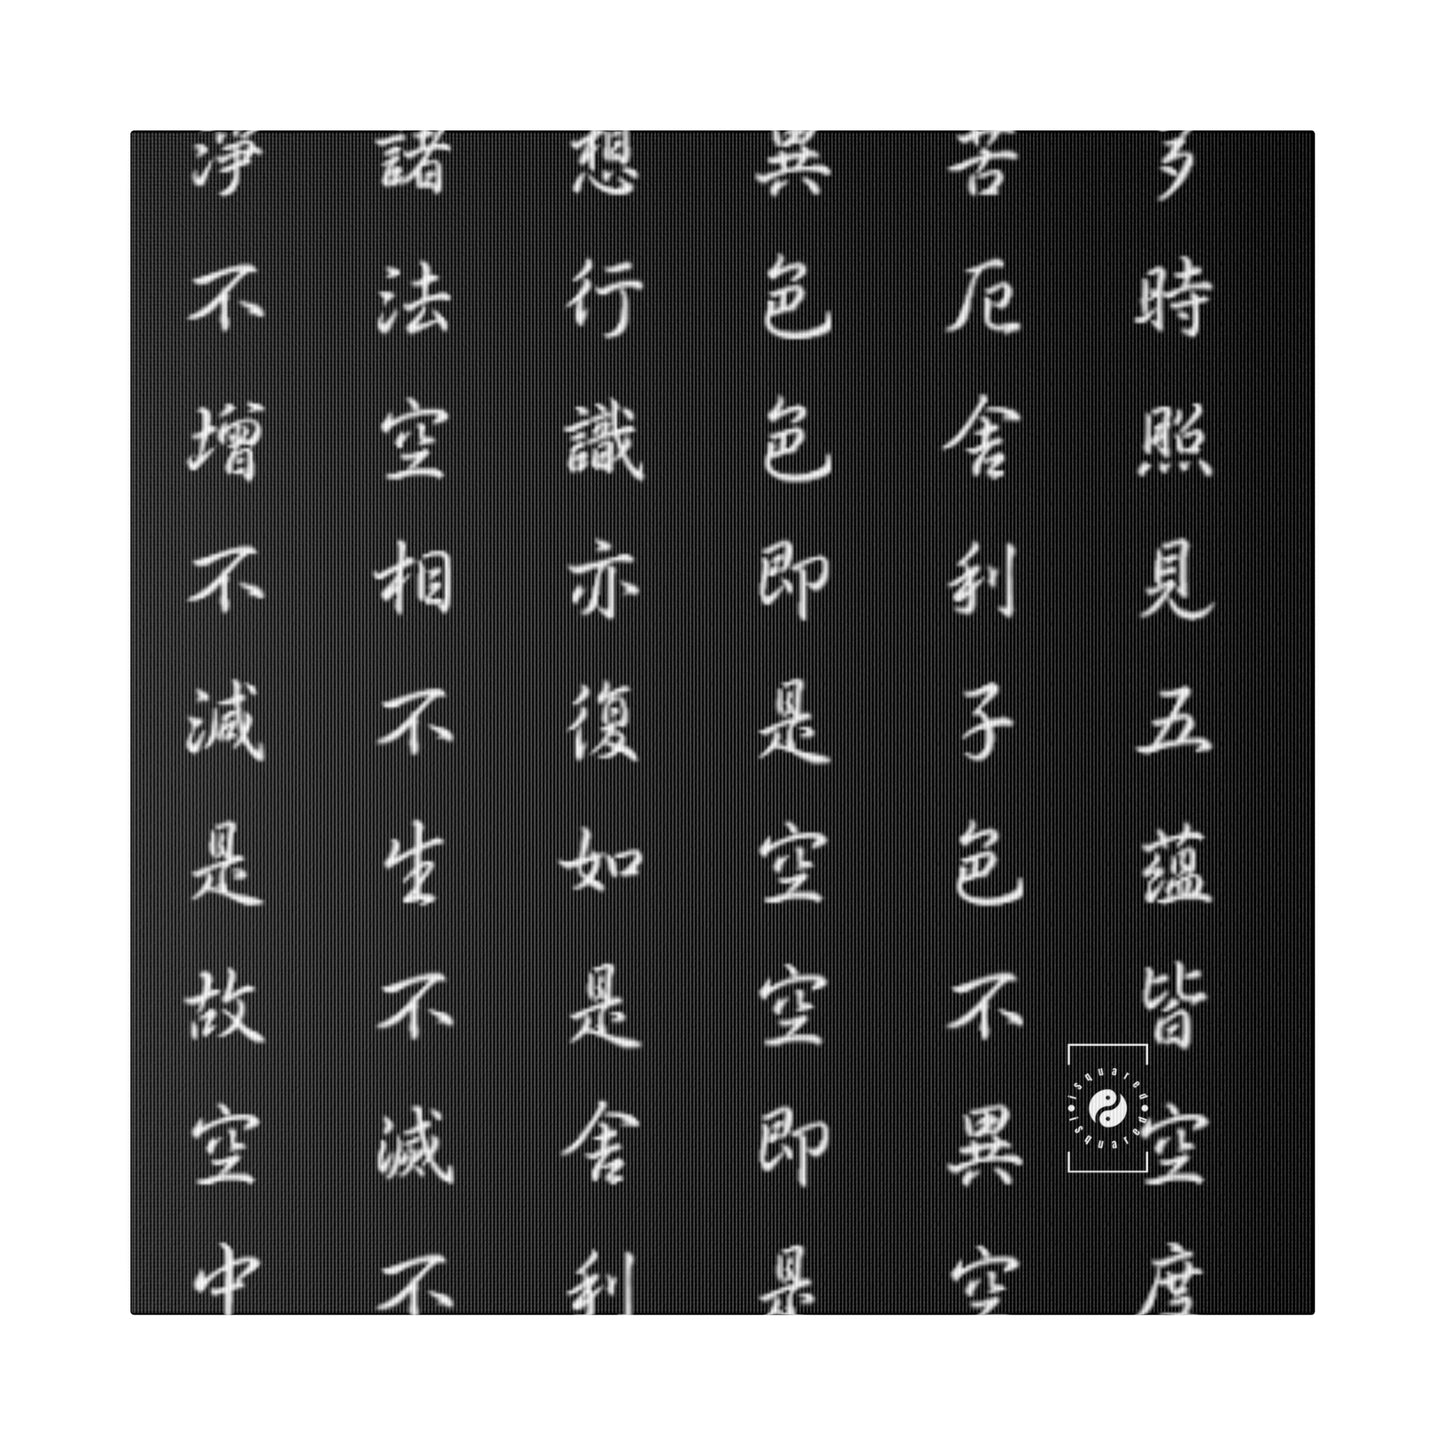 多時照見五蘊皆空度
苦厄舍利子色不異空
異色色即是空空即是
想行識亦復如是舍利
諸法空相不生不滅不
淨不增不減是故空中
isquared
isquared